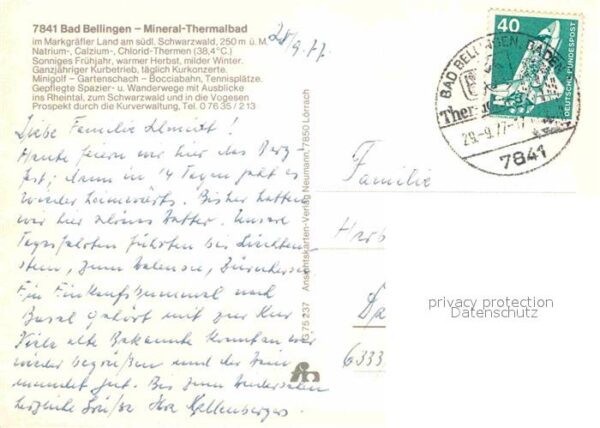 7841 Bad Bellingen – Mineral-Thermalbad
im Markgräfler Land am südl. Schwarzwald, 250 m ü. M.
Natrium-, Calzium-, Chlorid-Thermen (38,4°C.)
Sonniges Frühjahr, warmer Herbst, milder Winter.
Ganzjähriger Kurbetrieb, täglich Kurkonzerte.
Minigolf – Gartenschach – Bocciabahn, Tennisplätze.
Gepflegte Spazier- u. Wanderwege mit Ausblicke
ins Rheintal, zum Schwarzwald und in die Vogesen
Prospekt durch die Kurverwaltung, Tel. 0 76 35 / 2 13
28/9.77
Liebe Familie
Heute feiern wir hier das Berg
fest, denn in 14 Tagen geht es
wieder heimwärts. Bisher hatten
wir hier schönes Wetter. Unsere
Tagesfahrten führten bis Liechten
stein, zum Walensee, Zürichersee
Ein Einkaufsbummel nach
Basel gehört mit zur Kur
Viele alte Bekannte konnten wir
wieder begrüßen und der Wein
mundet gut. Bis zum Wiedersehen
herzliche Grüße Ihre Kellenbergers
G 75 237 Ansichtskarten-Verlag Neumann, 7850 Lörrach
40
DEUTSCHE BUNDESPOST
BAD BELLINGEN, BADEN
Ther
29.-9.77-17
7841
Familie
Herb
Da
6333
privacy protection
Datenschutz